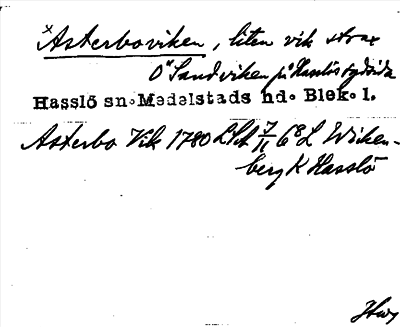 ×Asterboviken, liten vik strax
O Sandviken på Hasslös sydsida
Hasslö sn. Medelstads hd. Blek. l.
Asterbo Vik 1780 LSA 7/11 6 8 L Wicken-
berg K Hasslö